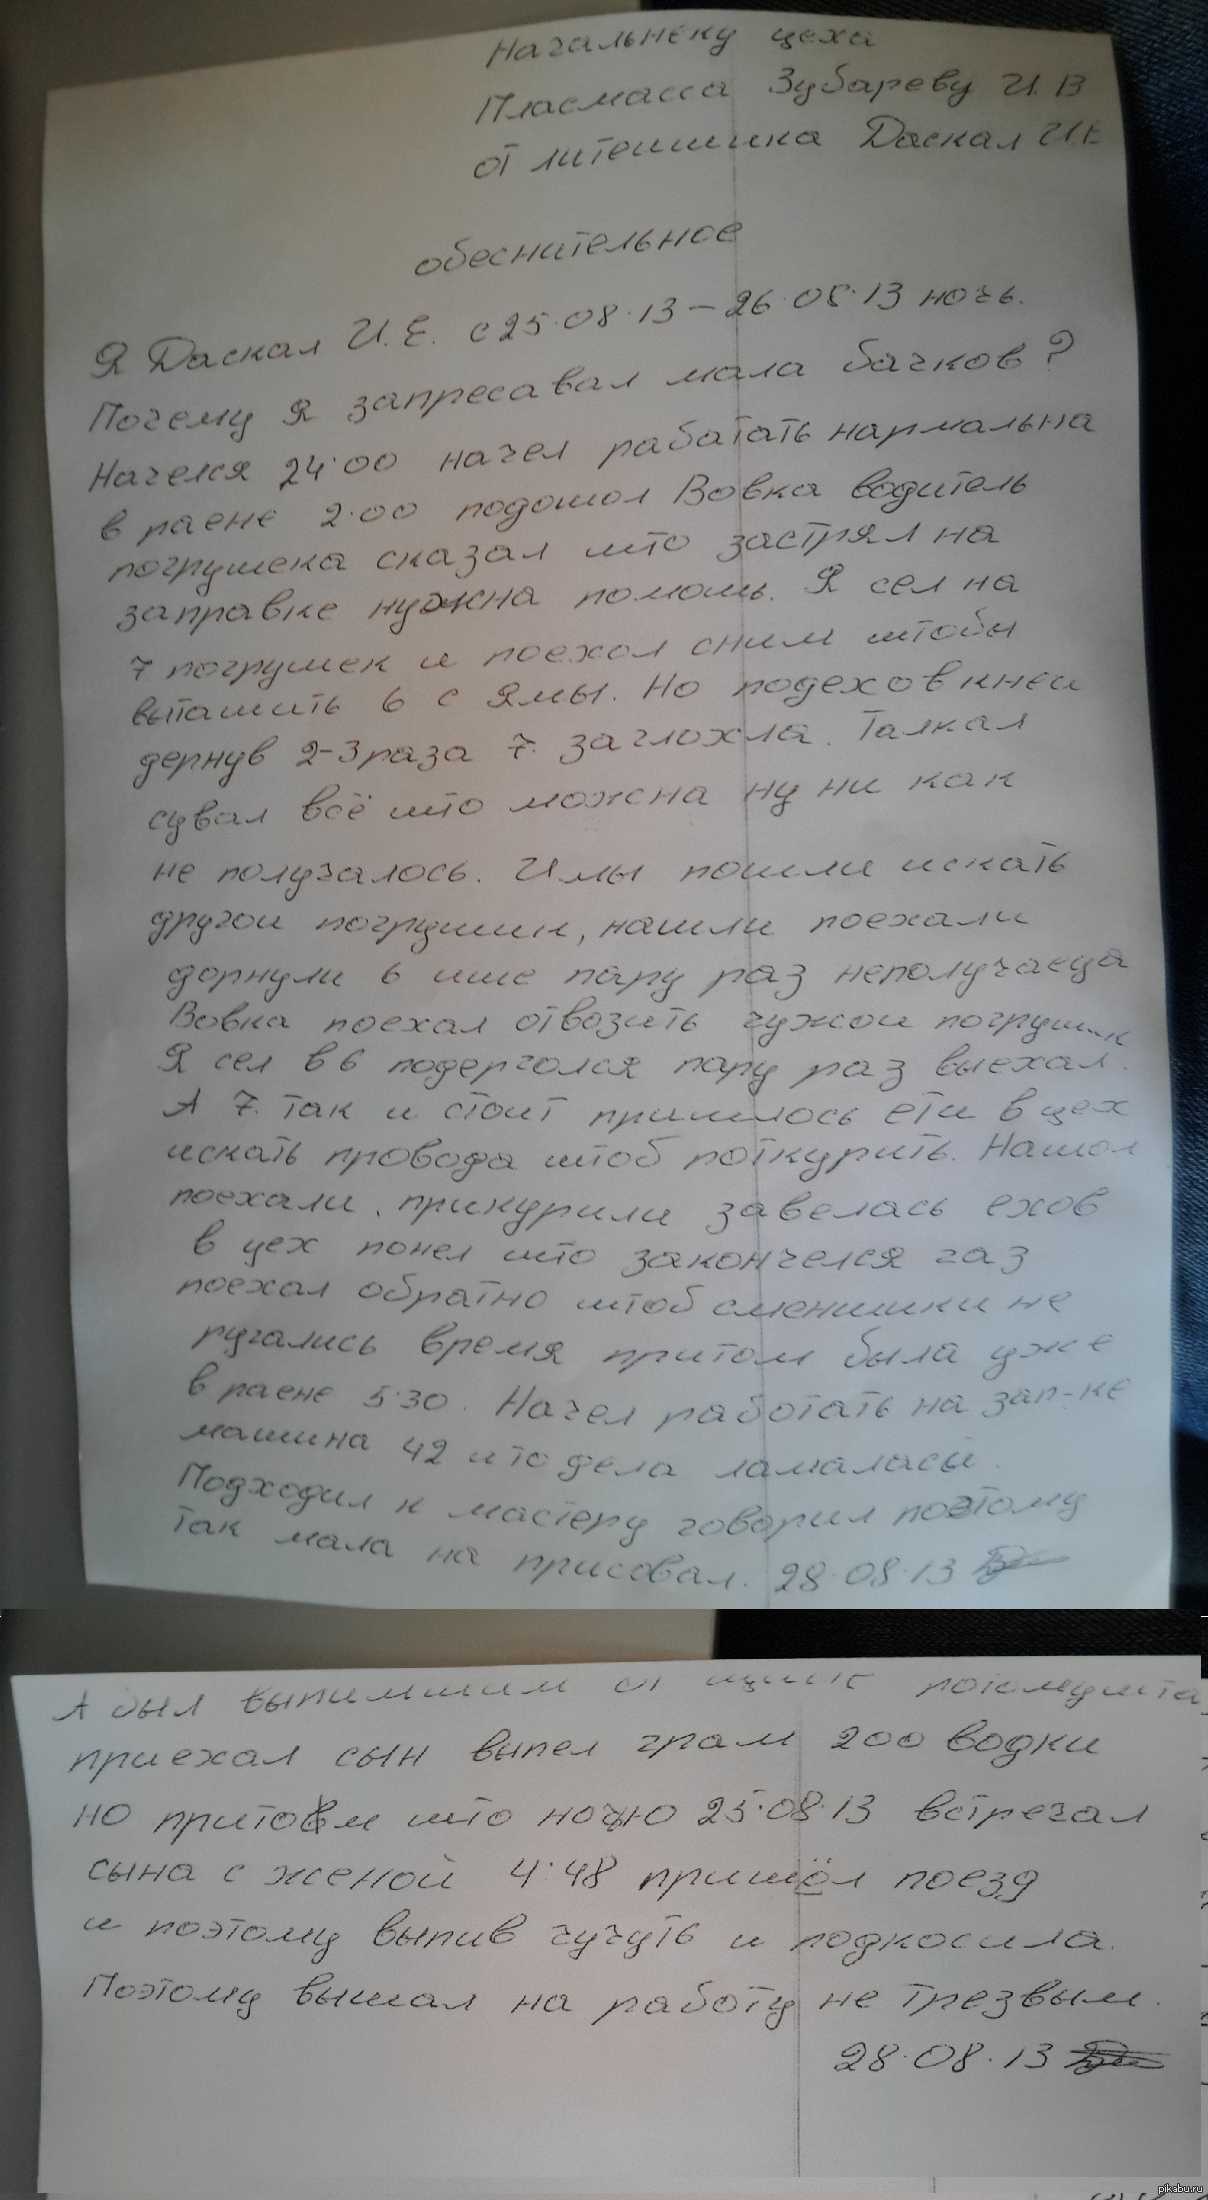 Начальнеку цеха
Пласмасса Зубареву И.В
от литеишика Даскал И.Е
обеснительное
Я Даскал И.Е. с 25.08.13 – 26.08.13 ночь.
Почему я запресавал мала бачков?
Начелся 24:00 начел рабатать нармальна
в раене 2:00 подошол Вовка водитель
погрушека сказал што застрял на
заправке нужна помошь. Я сел на
7 погрушек и поехол сним штобы
выташить 6 с ямы. Но подехов кнеи
дернув 2-3 раза 7. заглохла. Талкал
сувал всё што можна ну ни как
не получалось. И мы пошли искать
другои погрушик, нашли поехали
дорнули 6 ише пару раз неполучаеца
Вовка поехал отвозить чужои погрушик
Я сел в 6 подерголся пару раз выехал.
А 7. так и стоит пришлось ети в цех
искать провода штоб поткурить. Нашол
поехали, прикурили завелась ехов
в цех понел што закончелся газ
поехал обратно штоб сменшики не
ругались время притом была уже
в раене 5:30. Начел работать на зап-ке
машина 42 што дела ламаласи.
Подходил к мастеру говорил поэтому
так мала на присовал. 28.08.13
А был выпимшим потомушта
приехал сын выпел грам 200 водки
но притом што ночю 25.08.13 встречал
сына с женой 4:48 пришёл поезд
и поэтому выпив чучуть и подкосила.
Поэтому вышал на работу не трезвым.
28.08.13
pikabu.ru